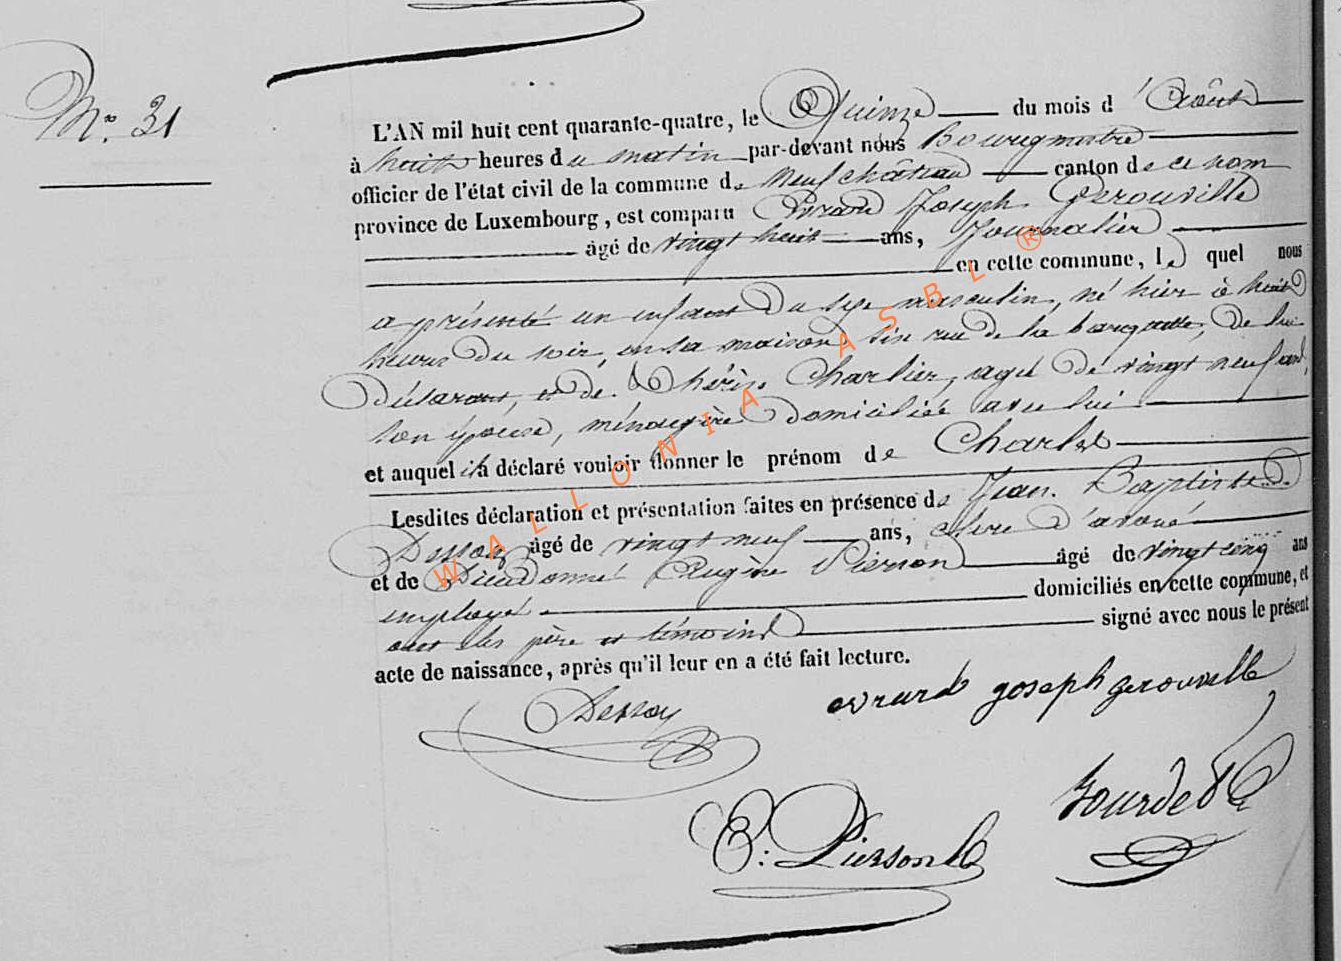 N° 31
L'AN mil huit cent quarante-quatre, le Quinze du mois d'août
à huit heures du matin par-devant nous Bourgmestre
officier de l'état civil de la commune de Neufchâteau canton de ce nom
province de Luxembourg, est comparu Evrard Joseph Gerouville
âgé de vingt huit ans, Journalier
en cette commune, lequel nous
a présenté un enfant du sexe masculin, né hier à huit
heures du soir, en sa maison sise rue de la, de lui
déclarant, et de Thérèse Charlier, agée de vingt neuf ans,
son épouse, ménagère domiciliée avec lui
et auquel il a déclaré vouloir donner le prénom de Charles
Lesdites déclaration et présentation faites en présence de Jean Baptiste
Dessoy âgé de vingt neuf ans, clerc d'avoué
et de Dieudonné Eugène Pierson âgé de vingt cinq ans
employé domiciliés en cette commune, et
ont les père et témoins signé avec nous le présent
acte de naissance, après qu'il leur en a été fait lecture.
Dessoy evrard joseph gerouville
E: Pierson
WALLONIA ASBL ®